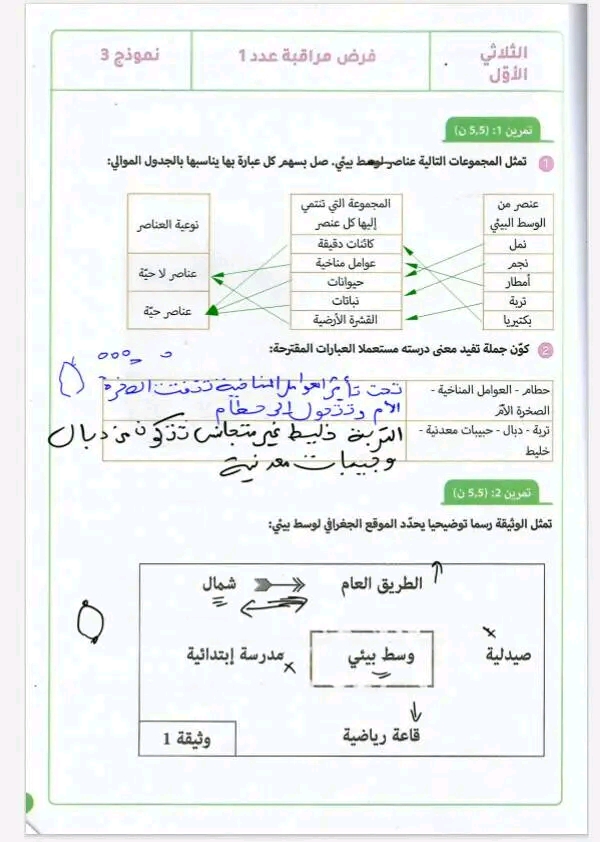 الثلاثي الأوّل
فرض مراقبة عدد 1
نموذج 3
تمرين 1: (5,5 ن)
1 تمثل المجموعات التالية عناصر لوسط بيئي. صل بسهم كل عبارة بها يناسبها بالجدول الموالي:
عنصر من الوسط البيئي
نمل
نجم
أمطار
تربة
بكتيريا
المجموعة التي تنتمي إليها كل عنصر
كائنات دقيقة
عوامل مناخية
حيوانات
نباتات
القشرة الأرضية
نوعية العناصر
عناصر لا حيّة
عناصر حيّة
2 كوّن جملة تفيد معنى درسته مستعملا العبارات المقترحة:
حطام - العوامل المناخية -
الصخرة الأم
تحت تأثير العوامل المناخية تتفتت الصخرة
الأم وتتحول إلى حطام
تربة - دبال - حبيبات معدنية -
خليط
التربة خليط غير متجانس تتكون من دبال
وحبيبات معدنية
تمرين 2: (5,5 ن)
تمثل الوثيقة رسما توضيحيا يحدّد الموقع الجغرافي لوسط بيئي:
الطريق العام
شمال
صيدلية
وسط بيئي
مدرسة إبتدائية
قاعة رياضية
وثيقة 1